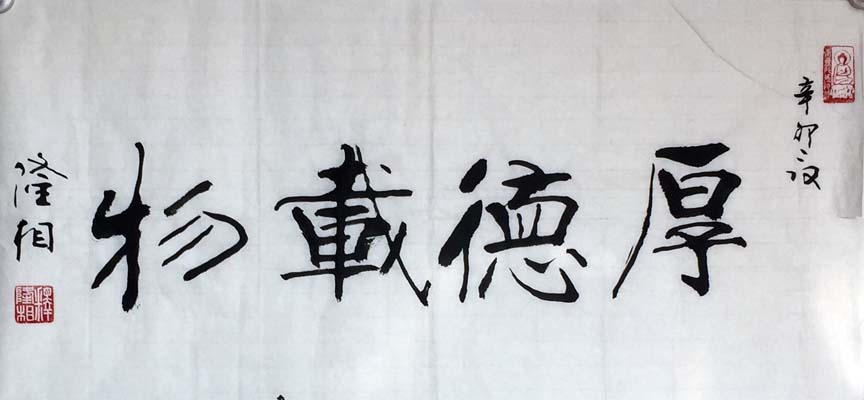 辛卯
厚德載物
隆相